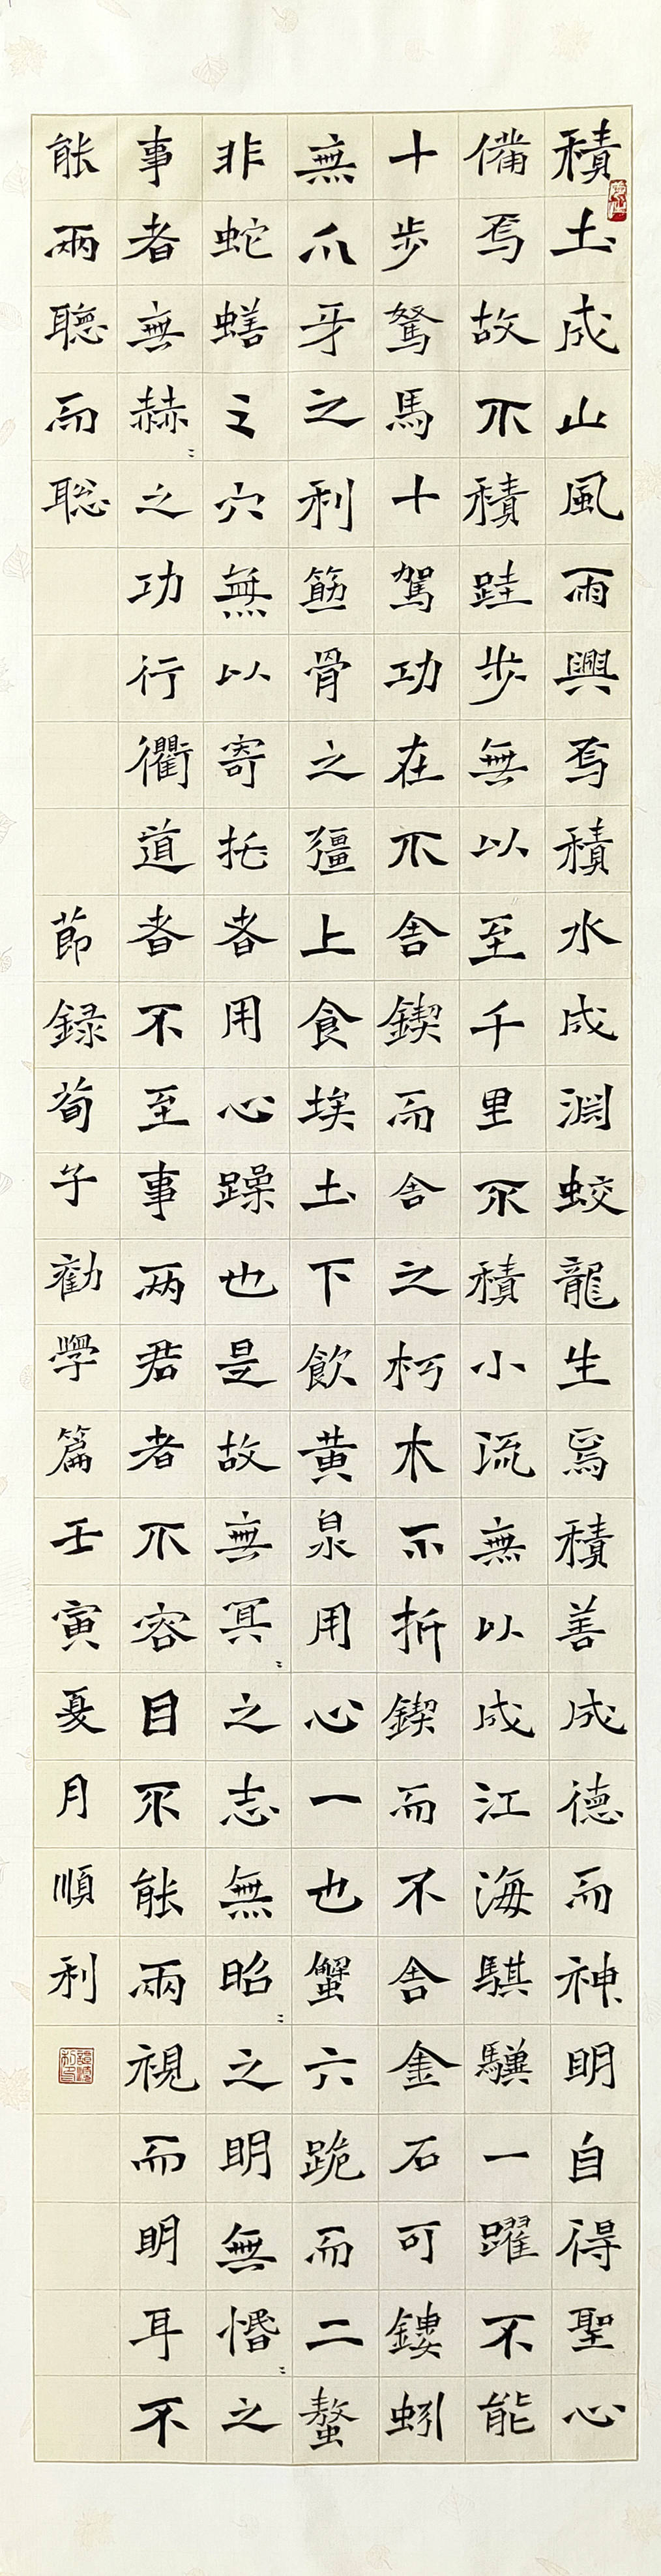 積土成山風雨興焉積水成淵蛟龍生焉積善成德而神明自得聖心
備焉故不積跬步無以至千里不積小流無以成江海騏驥一躍不能
十步駑馬十駕功在不舍鍥而舍之朽木不折鍥而不舍金石可鏤蚓
無爪牙之利筋骨之彊上食埃土下飲黄泉用心一也蟹六跪而二螯
非蛇蟮之穴無以寄托者用心躁也是故無冥〻之志無昭〻之明無惛〻之
事者無赫〻之功行衢道者不至事兩君者不容目不能兩視而明耳不
能兩聽而聡
節録荀子勸學篇壬寅夏月順利